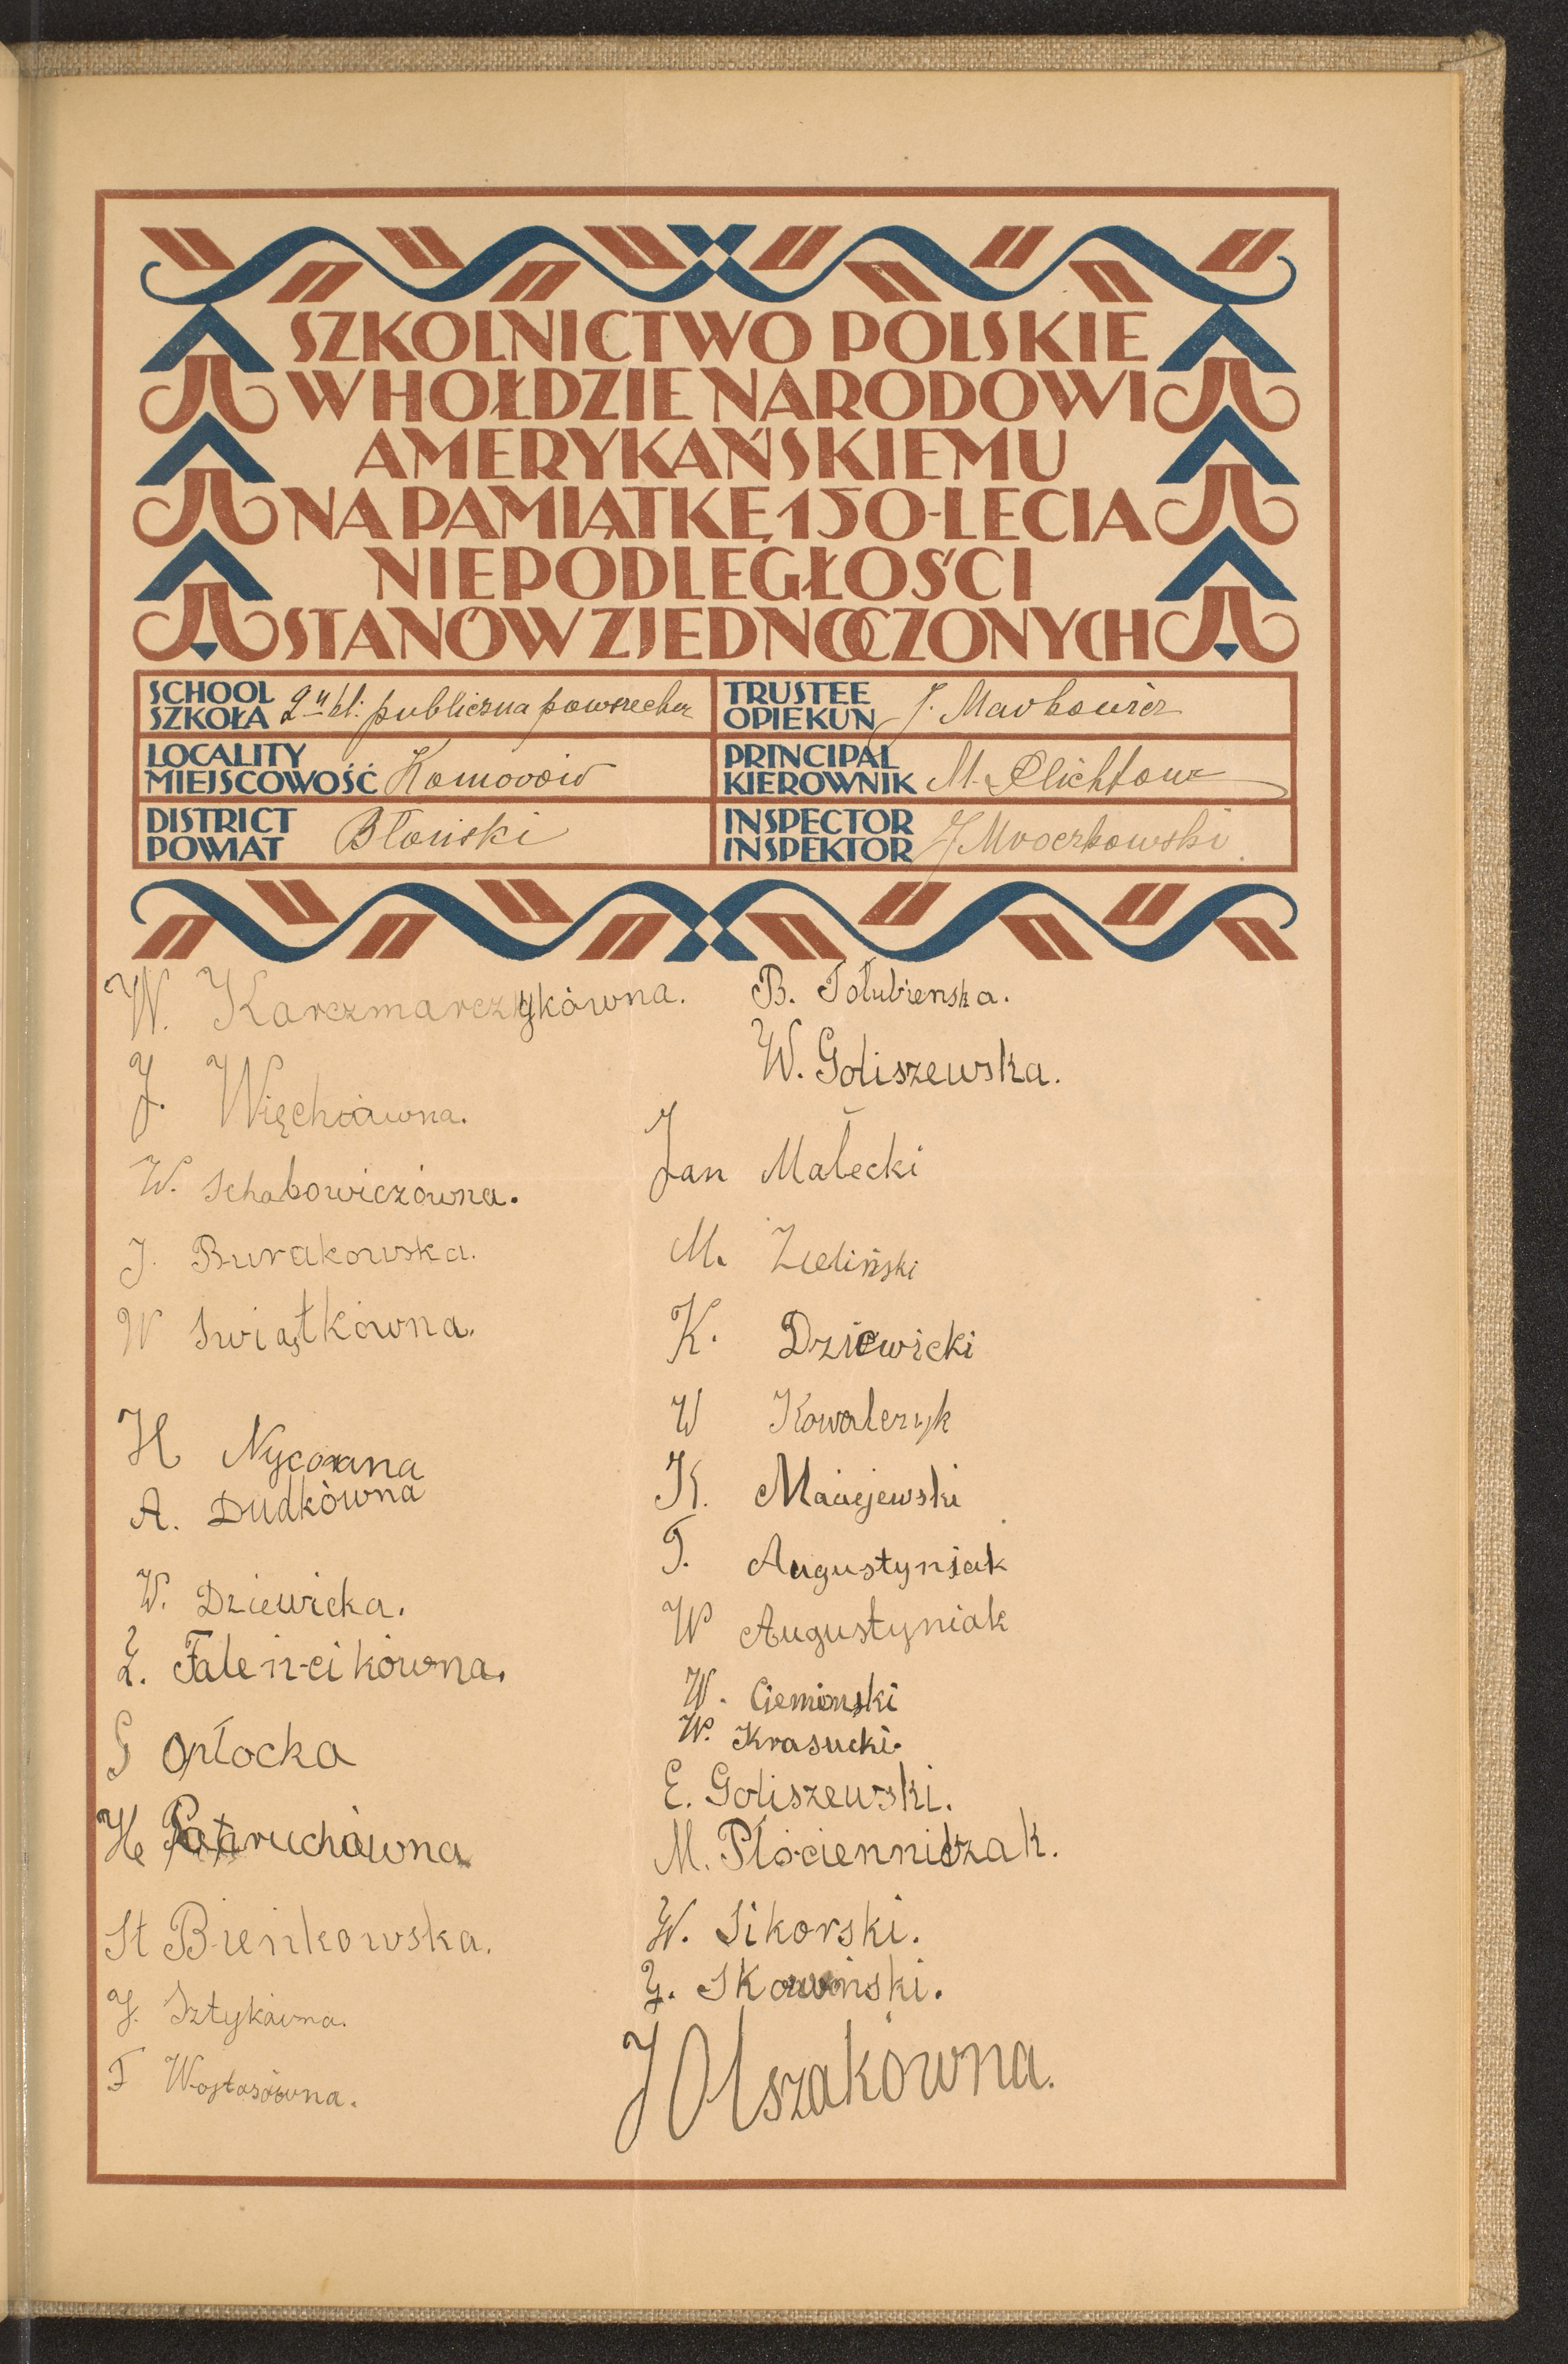 SZKOLNICTWO POLSKIE
W HOŁDZIE NARODOWI
AMERYKAŃSKIEMU
NA PAMIĄTKĘ 150-LECIA
NIEPODLEGŁOŚCI
STANÓW ZJEDNOCZONYCH
SCHOOL
SZKOŁA 2 kl. publiczna powszechna
TRUSTEE
OPIEKUN J. Markowicz
LOCALITY
MIEJSCOWOŚĆ Komorów
PRINCIPAL
KIEROWNIK M.
DISTRICT
POWIAT Błoński
INSPECTOR
INSPEKTOR J Mroczkowski
W. Karczmarczykówna.
J. Więchówna.
W. Schabowiczówna.
J. Burakowska.
W Swiątkówna.
H Nycówna
A. Dudkówna
W. Dziewicka.
Z. Faleńcikówna.
G Opłocka
H.
St Bieńkowska.
J. Sztykówna.
F Wojtasówna.
B. Gołubienska.
W. Goliszewska.
Jan Małecki
M. Zieliński
K. Dziewicki
W Kowalczyk
K. Maciejewski
T. Augustyniak
W Augustyniak
W. Ciemiński
W. Krasucki.
E. Goliszewski.
M. Płócienniczak.
W. Sikorski.
Z. Skowiński.
J Olszakówna.